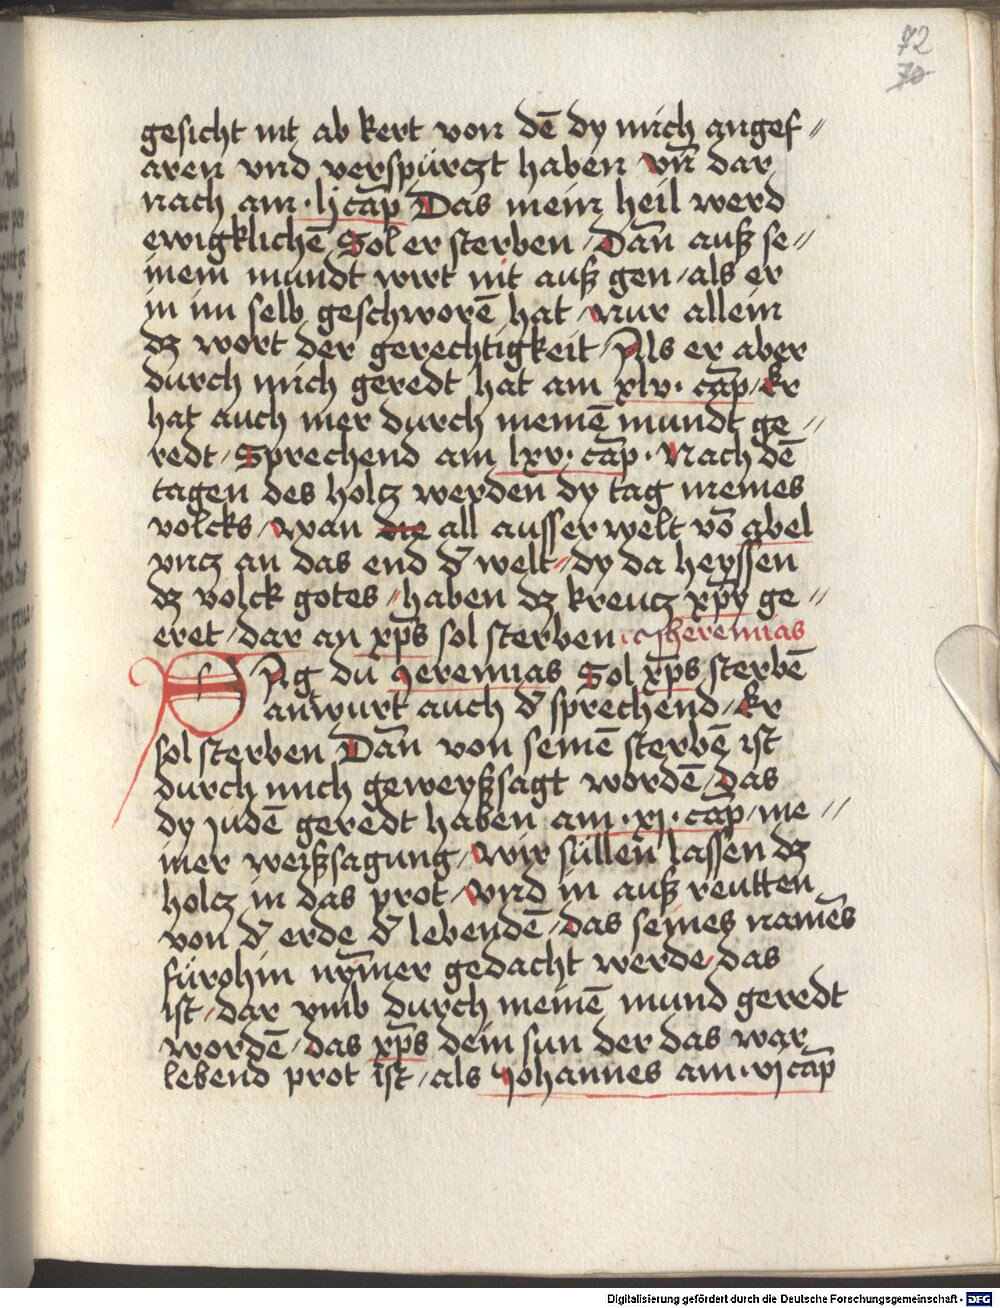 72
70
gesicht nit ab kert von dē dy mich angef //
aren vnd verspürczt haben / vn̄ dar
nach am · lj cap̄ Das mein heil werd
ewigklichē / Sol er sterben / Dan̄ auß se //
inem mundt wirt nit auß gen / als er
in im selb geschworē hat / Nur allein
dz wort der gerechtigkeit / Als er aber
durch mich geredt hat am xlv · cap̄ / Er
hat auch mer durch meinē mundt ge //
redt / Sprechend am lxv · cap̄ · Nach dē
tagen des holcz werden dy tag meines
volcks / wan die all ausser welt vō abel
vncz an das end d̄ welt / dy da heyssen
dz volck gotes / haben dz kreucz xp̄y ge //
eret / dar an xp̄s sol sterben · Jheremias
SAg du Jeremias Sol xp̄s sterbē
antwurt auch d̄ sprechend / Er
sol sterben Dan̄ von seinē sterbē ist
durch mich geweyßsagt wordē / das
dy judē geredt haben am · xj · cap̄ / me //
iner weißsagung / Wir süllen lassen dz
holcz in das prot / Vnd in auß reutten
von d̄ erde d̄ lebendē / das seines namēs
fürohin nym̄er gedacht werde / das
ist / dar vmb durch meinē mund geredt
wordē / das xp̄s dein sun der das war
lebend prot ist / als Johannes am · vj cap̄
Digitalisierung gefördert durch die Deutsche Forschungsgemeinschaft - DFG